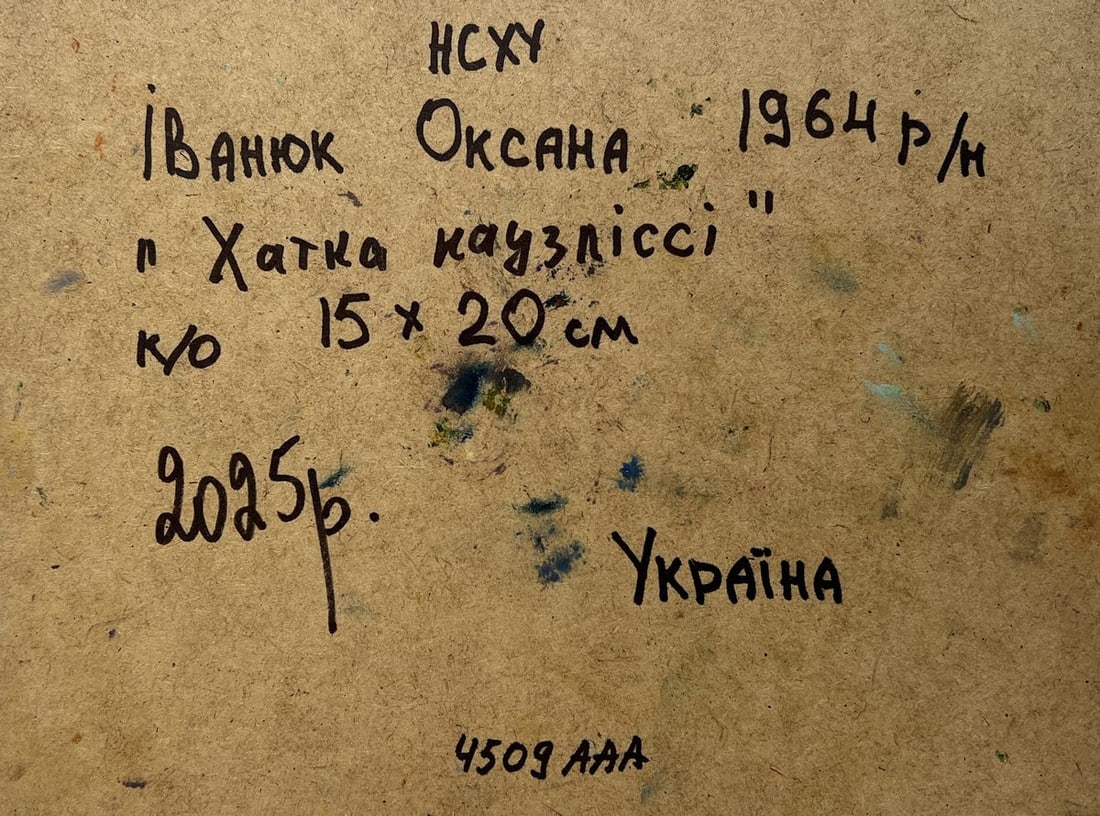 НСХУ
Іванюк Оксана 1964 р/н
"Хатка наузліссі"
к/о 15 x 20 см
2025р.
Україна
4509 ААА